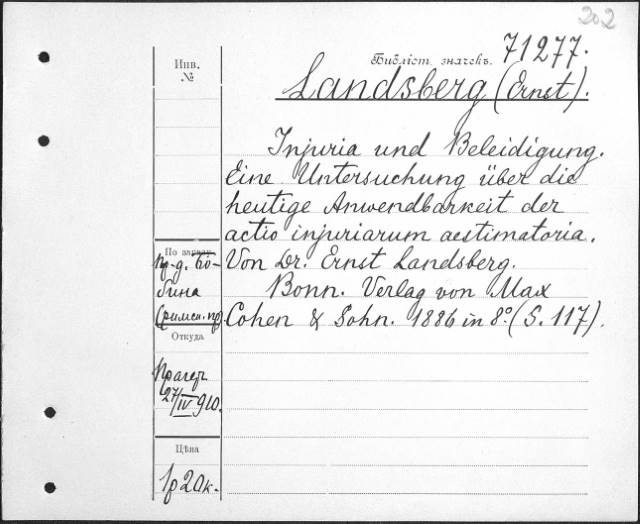 202
Инв.
№
Библіот. значекъ.
71277.
Landsberg (Ernst).
Injuria und Beleidigung.
Eine Untersuchung über die
heutige Anwendbarkeit der
actio injuriarum aestimatoria.
Von Dr. Ernst Landsberg.
Bonn. Verlag von Max
Cohen & Sohn. 1886 in 8.° (S. 117).
По заказу
пр-д. Бо-
бина
(римск. пр).
Откуда
Прагеръ
27/IV 910.
Цѣна
1р 20к.